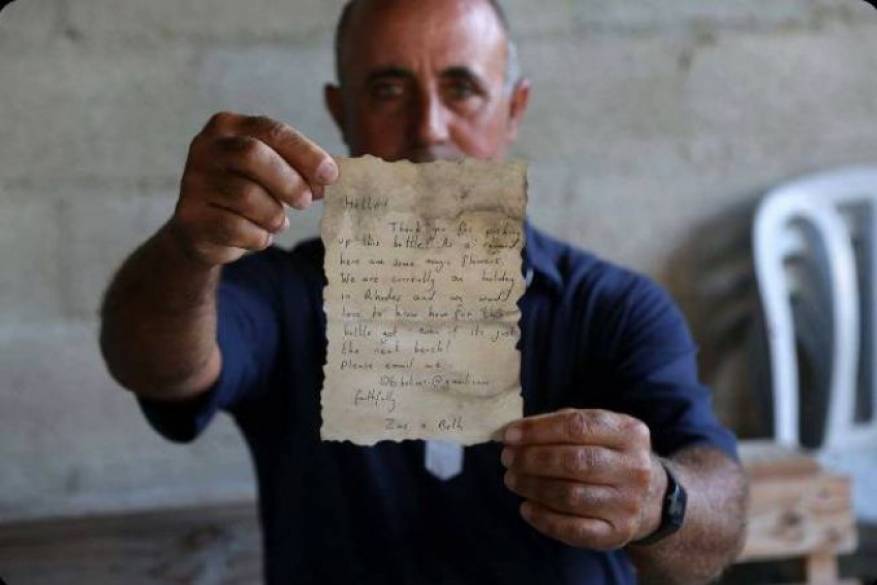 Hello!
Thank you for picking
up this bottle! As a reward
here are some magic flowers.
We are currently on holiday
in Rhodes and we would
love to know how far this
bottle got even if its just
the next beach!
Please email me
@gmail.com
faithfully
Zac & Beth